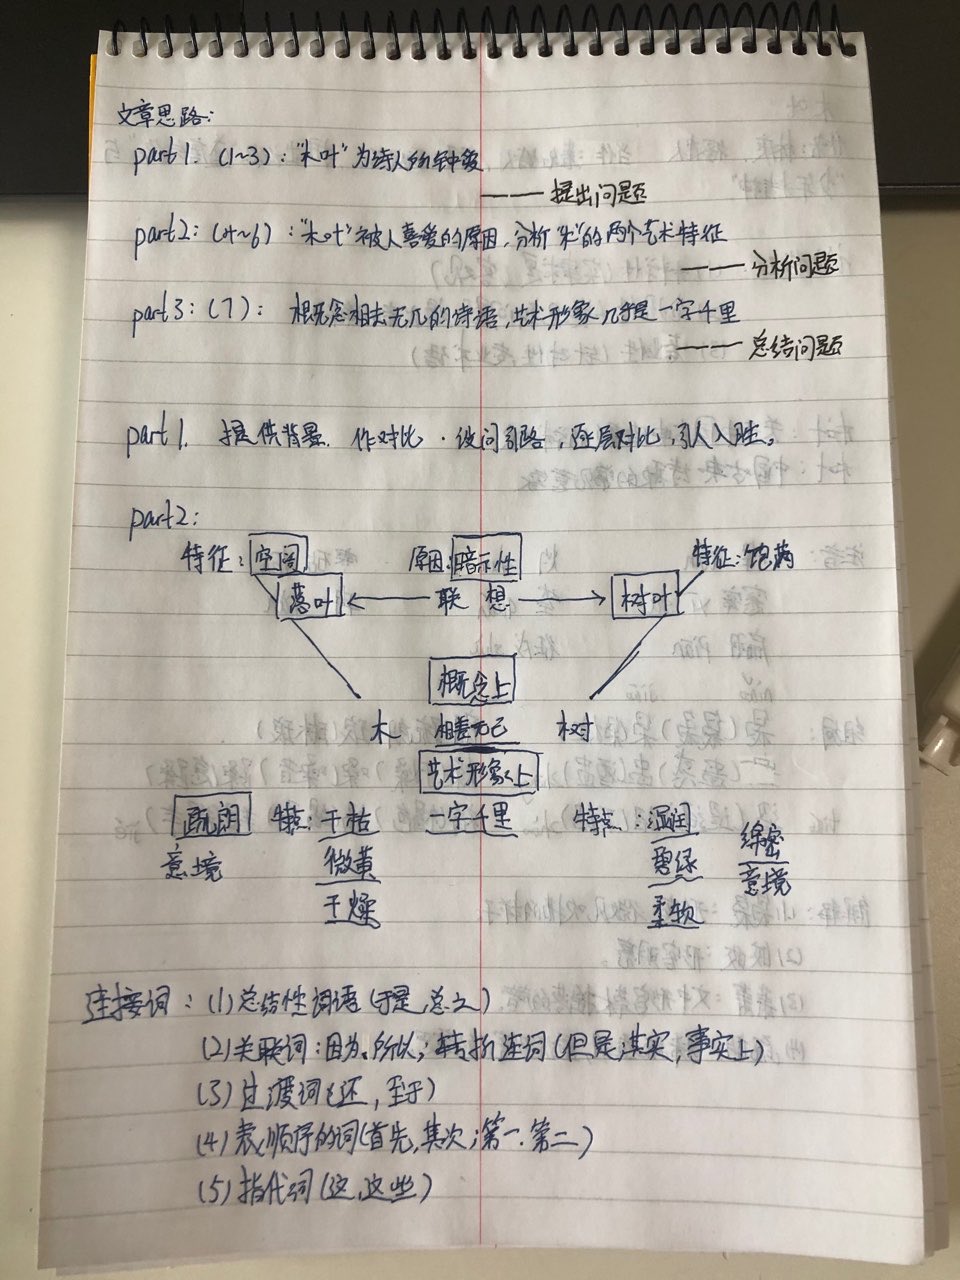 文章思路:
part1. (1~3): "木叶"为诗人所钟爱
——提出问题
part2: (4~6): "木叶"被人喜爱的原因,分析"木"的两个艺术特征
——分析问题
part3: (7): 概念相去无几的诗语,艺术形象几乎是一字千里
——总结问题
part1. 提供背景. 作对比. 设问引路, 层层对比, 引人入胜。
part2:
特征:空阔 原因:暗示性 特征:饱满
落叶 联想 树叶
概念上
木 相差无己 树
艺术形象上
疏朗 特点:干枯 一字千里 特点:湿润
意境 微黄 碧绿 绵密
干燥 柔软 意境
连接词:(1)总结性词语(于是,总之)
(2)关联词:因为.所以;转折连词(但是;其实,事实上)
(3)过渡词(还,至于)
(4)表顺序的词(首先,其次;第一.第二)
(5)指代词(这,这些)